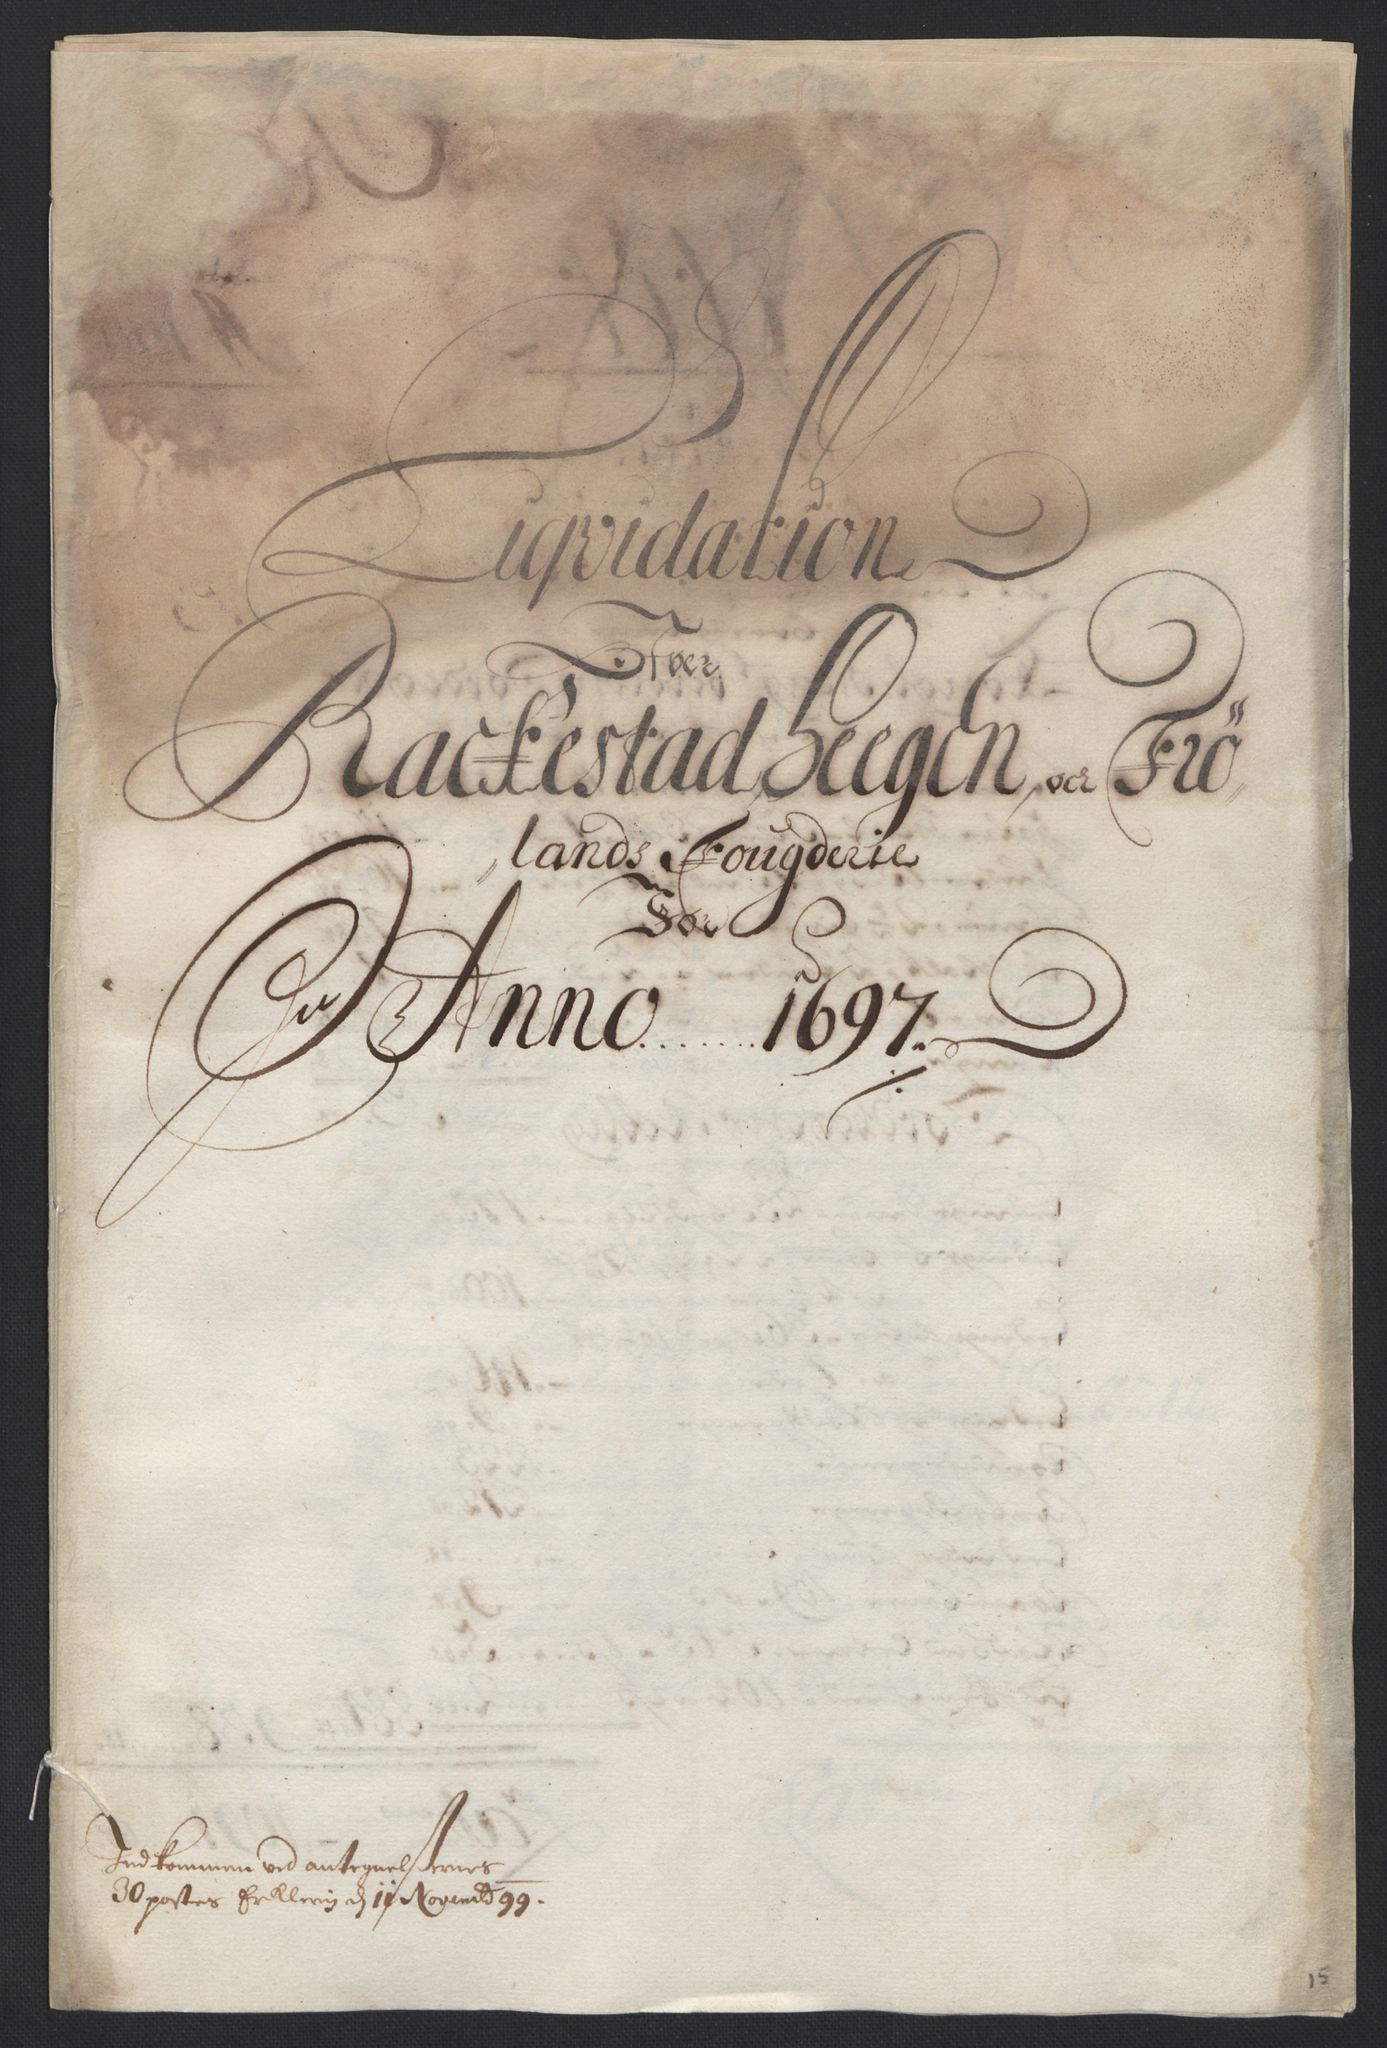 Liqvidation
Over
Rackestad, Heegen, oc Frö,,
,,lands Fougderie
For
Anno ....... 1697.
Indkommen ved antegnelsernes
30 postes Erklering d 11 Novemb 99.
15